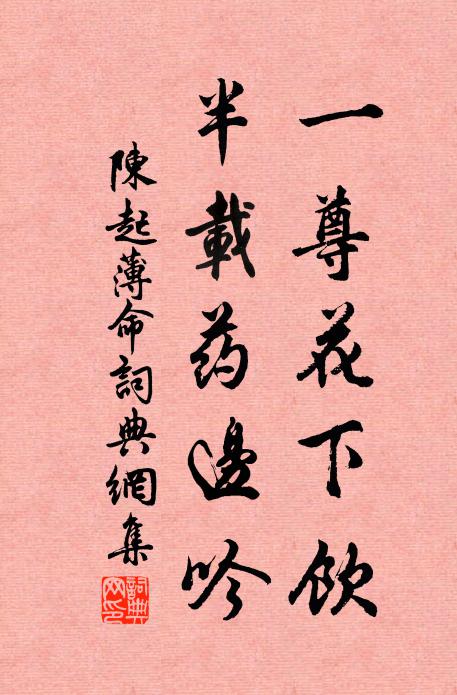 一尊花下飲
半載药邊吟
陳起薄命詞典網集
詞典網印